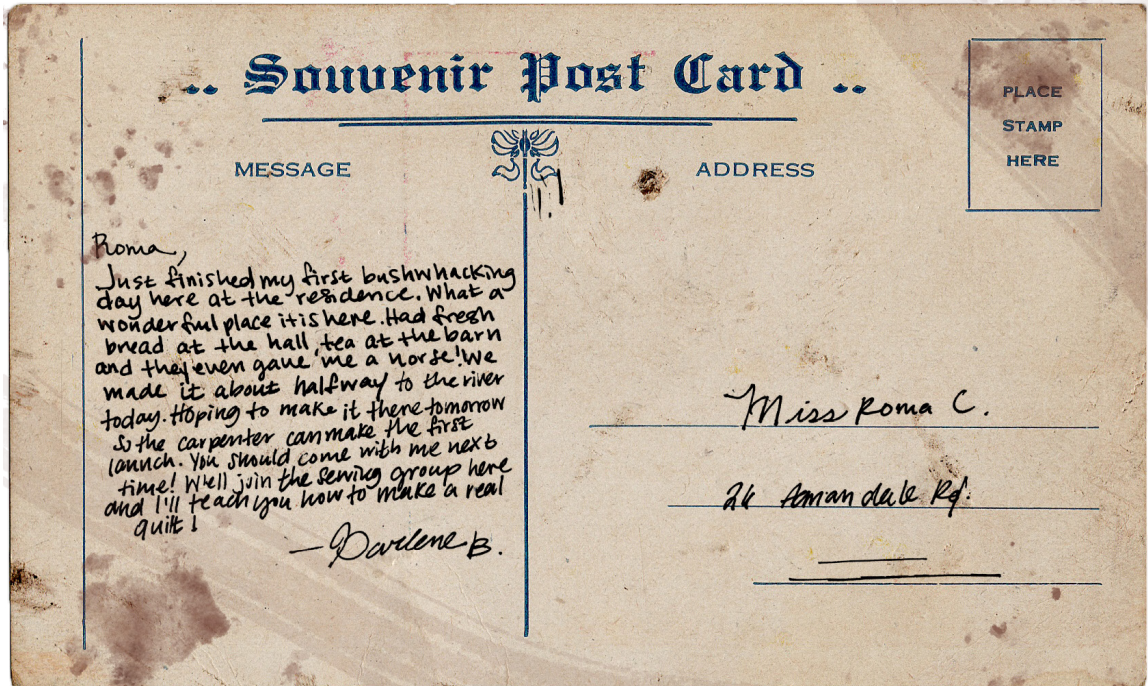 .. Souvenir Post Card ..
MESSAGE
ADDRESS
PLACE
STAMP
HERE
Roma,
Just finished my first bushwhacking
day here at the residence. What a
wonderful place it is here. Had fresh
bread at the hall, tea at the barn
and they even gave me a horse! We
made it about halfway to the river
today. Hoping to make it there tomorrow
so the carpenter can make the first
launch. You should come with me next
time! We'll join the sewing group here
and I'll teach you how to make a real
quilt!
— Darlene B.
Miss Roma C.
Rd.